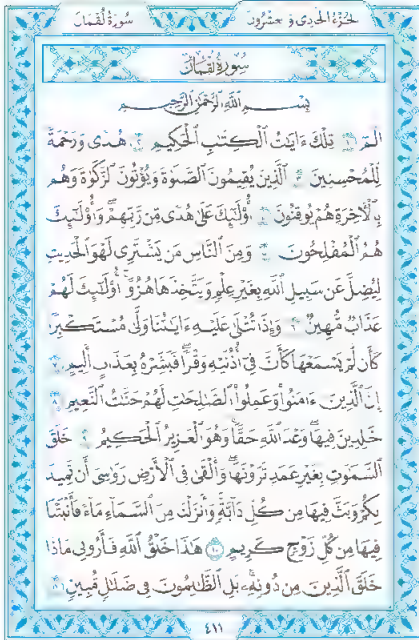 الجزء الحادي و عشرون
سورة لقمان
سورة لقمان
بسم الله الرحمن الرحيم
الٓمٓ ١ تِلْكَ ءَايَٰتُ ٱلْكِتَٰبِ ٱلْحَكِيمِ ٢ هُدًى وَرَحْمَةً
لِّلْمُحْسِنِينَ ٣ ٱلَّذِينَ يُقِيمُونَ ٱلصَّلَوٰةَ وَيُؤْتُونَ ٱلزَّكَوٰةَ وَهُم
بِٱلْءَاخِرَةِ هُمْ يُوقِنُونَ ٤ أُو۟لَٰٓئِكَ عَلَىٰ هُدًى مِّن رَّبِّهِمْ وَأُو۟لَٰٓئِكَ
هُمُ ٱلْمُفْلِحُونَ ٥ وَمِنَ ٱلنَّاسِ مَن يَشْتَرِى لَهْوَ ٱلْحَدِيثِ
لِيُضِلَّ عَن سَبِيلِ ٱللَّهِ بِغَيْرِ عِلْمٍ وَيَتَّخِذَهَا هُزُوًا أُو۟لَٰٓئِكَ لَهُمْ
عَذَابٌ مُّهِينٌ ٦ وَإِذَا تُتْلَىٰ عَلَيْهِ ءَايَٰتُنَا وَلَّىٰ مُسْتَكْبِرًا
كَأَن لَّمْ يَسْمَعْهَا كَأَنَّ فِىٓ أُذُنَيْهِ وَقْرًا فَبَشِّرْهُ بِعَذَابٍ أَلِيمٍ ٧
إِنَّ ٱلَّذِينَ ءَامَنُوا۟ وَعَمِلُوا۟ ٱلصَّٰلِحَٰتِ لَهُمْ جَنَّٰتُ ٱلنَّعِيمِ ٨
خَٰلِدِينَ فِيهَا وَعْدَ ٱللَّهِ حَقًّا وَهُوَ ٱلْعَزِيزُ ٱلْحَكِيمُ ٩ خَلَقَ
ٱلسَّمَٰوَٰتِ بِغَيْرِ عَمَدٍ تَرَوْنَهَا وَأَلْقَىٰ فِى ٱلْأَرْضِ رَوَٰسِىَ أَن تَمِيدَ
بِكُمْ وَبَثَّ فِيهَا مِن كُلِّ دَآبَّةٍ وَأَنزَلْنَا مِنَ ٱلسَّمَآءِ مَآءً فَأَنۢبَتْنَا
فِيهَا مِن كُلِّ زَوْجٍ كَرِيمٍ ١٠ هَٰذَا خَلْقُ ٱللَّهِ فَأَرُونِى مَاذَا
خَلَقَ ٱلَّذِينَ مِن دُونِهِۦ بَلِ ٱلظَّٰلِمُونَ فِى ضَلَٰلٍ مُّبِينٍ ١١
٤١١